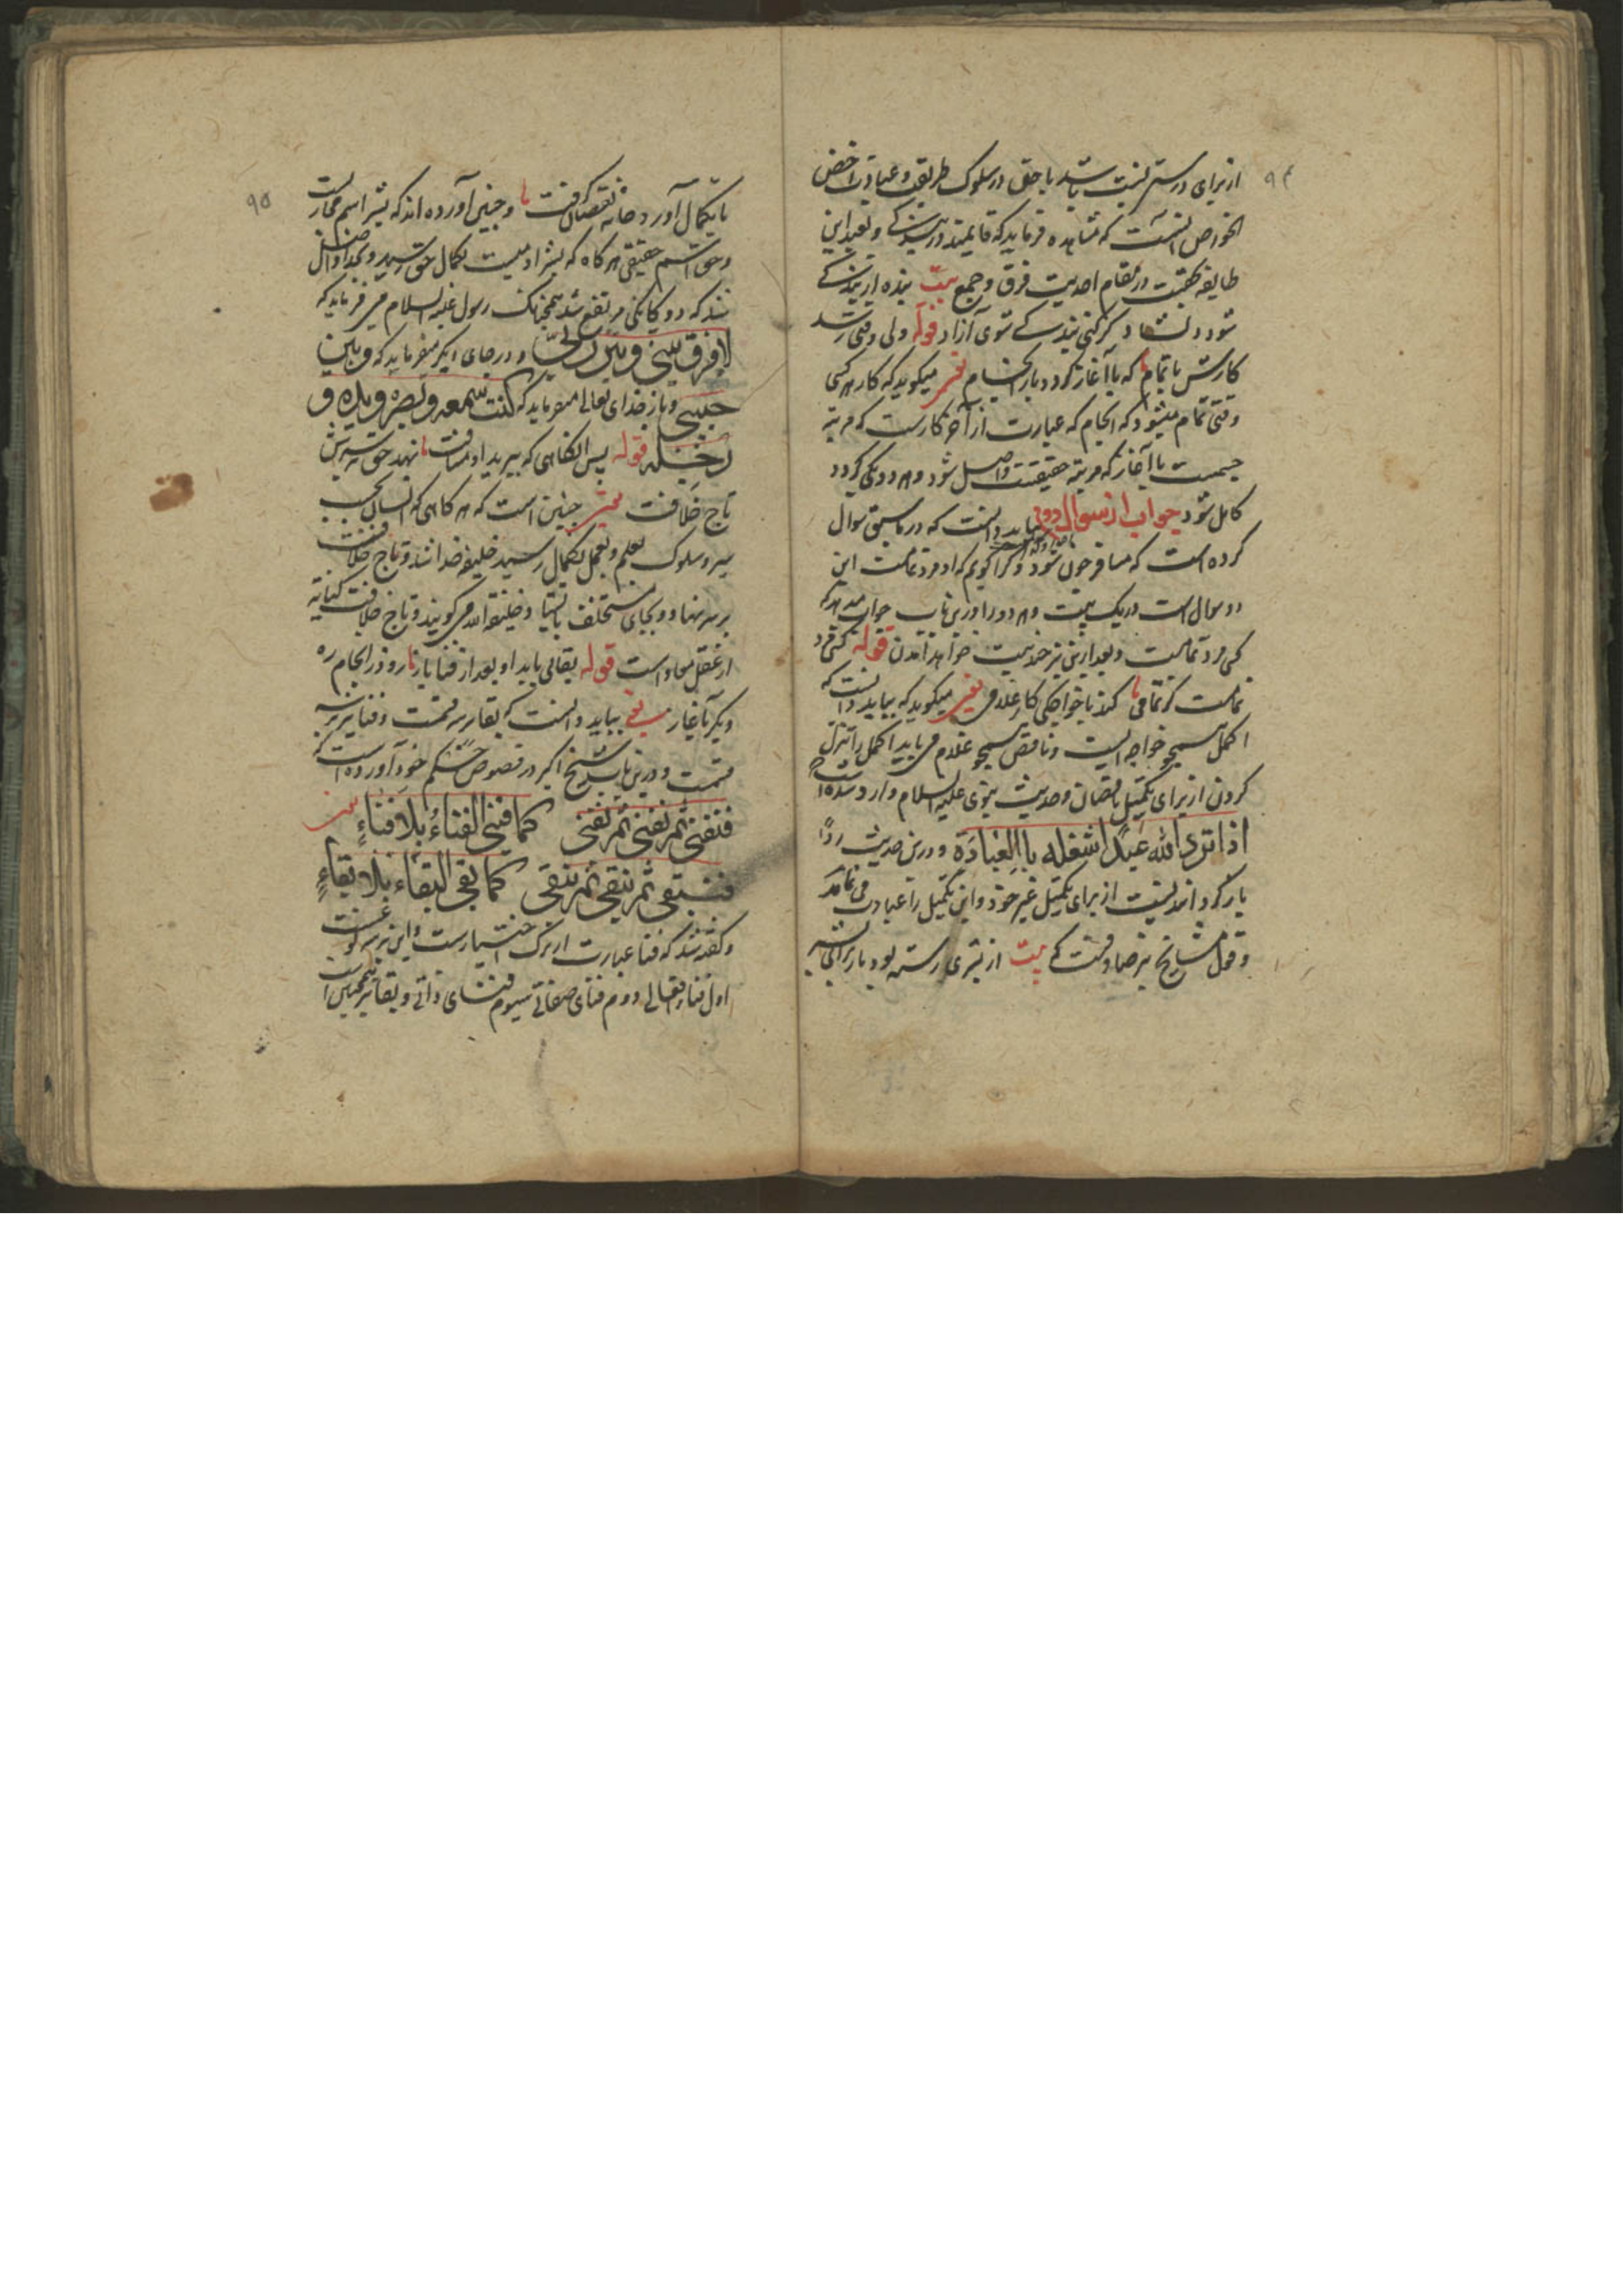 ۹۴
از برای درستی نسبت باشد با حق در سلوک طریقت و عبادت اخص
الخواص آنست که مشاهده فرماید که قایمند در بندگی و تعبد این
طایفه در مقام احدیت فرق و جمع بیت بنده از بندگی
شود دلشاد گر کنی بندگی شوی آزاد قوله ولی وقتی رسد
کارش باتمام که با آغاز گردد باز انجام میگوید که کار هر کسی
وقتی تمام میشود که انجام که عبارت از آخر کارست که مرتبه
جسمست با آغاز که مرتبه حقیقتست واصل شود و هر دو یکی گردد
کامل شود جواب از سوال دوم بباید دانست که در ماسبق سوال
کرده است که مسافر چون شود و کرا گویم که او مرد تمامست این
دو سوال است در یک بیت و هر دو را درین باب جواب
کی مرد تمامست و بعد ازین نیز چند بیت خواهد آمدن قوله کسی مرد
تمامست کز تمامی کند با خواجگی کار غلامی میگوید که بباید دانست که
اکمل همچو خواجه ایست و ناقص همچو غلام می باید اکمل را تنزل
کردن از برای تکمیل ناقصان و حدیث نبوی علیه السلام وارد شده است
اذا الله عبدا اشغله بالعبادة و درین حدیث
باز گردانیدنیست از برای تکمیل غیر خود و این تکمیل را عبادت می نامند
و قول مشایخ نیز صادقست که بیت از بشری رسته بود باز برای بشر
۹۵
تا بکمال آورد خانه نقصان گرفت و چنین آورده اند که بشر اسم مجازیست
و حق اسم حقیقی هر گاه که بشر آدمیت بکمال حق رسید و بخدا واصل
شد که دوگانگی مرتفع شد همچنانک رسول علیه السلام می فرماید که
لا فرق بینی و بین ربی و در جای دیگر میفرماید که و بین
حبیبی و باز خدای تعالی میفرماید که کنت سمعه و بصره و یده و
رجله قوله پس آنگاهی که ببرید او مسافت نهد حق بر سرش
تاج خلافت چنین است که هر گاهی که انسان بحسب
سیر و سلوک بعلم و بعمل بکمال رسید خلیفه خدا شد و تاج خلافت
بر سر نهاد و بجای مستخلف بایستاد و خلیفة الله می گویند و تاج خلافت کنایه
از عقل معاد است قوله بقائی یابد او بعد از فنا باز رود ز انجام ره
دیگر بآغاز بباید دانست که بقا بر سه قسمت و فنا نیز بر سه
قسمت و درین باب شیخ اکبر در فصوص حکم خود آورده است
فنفنی ثم نفنی ثم نفنی کما فنی الفناء بلا فناء
فنبقی ثم نبقی ثم نبقی کما بقی البقاء بلا بقاء
و گفته شد که فنا عبارت از ترک اختیارست و این نیز بر سه گونست
اول فناء افعالی دوم فنای صفاتی سیوم فنای ذاتی و بقا نیز همچنین است